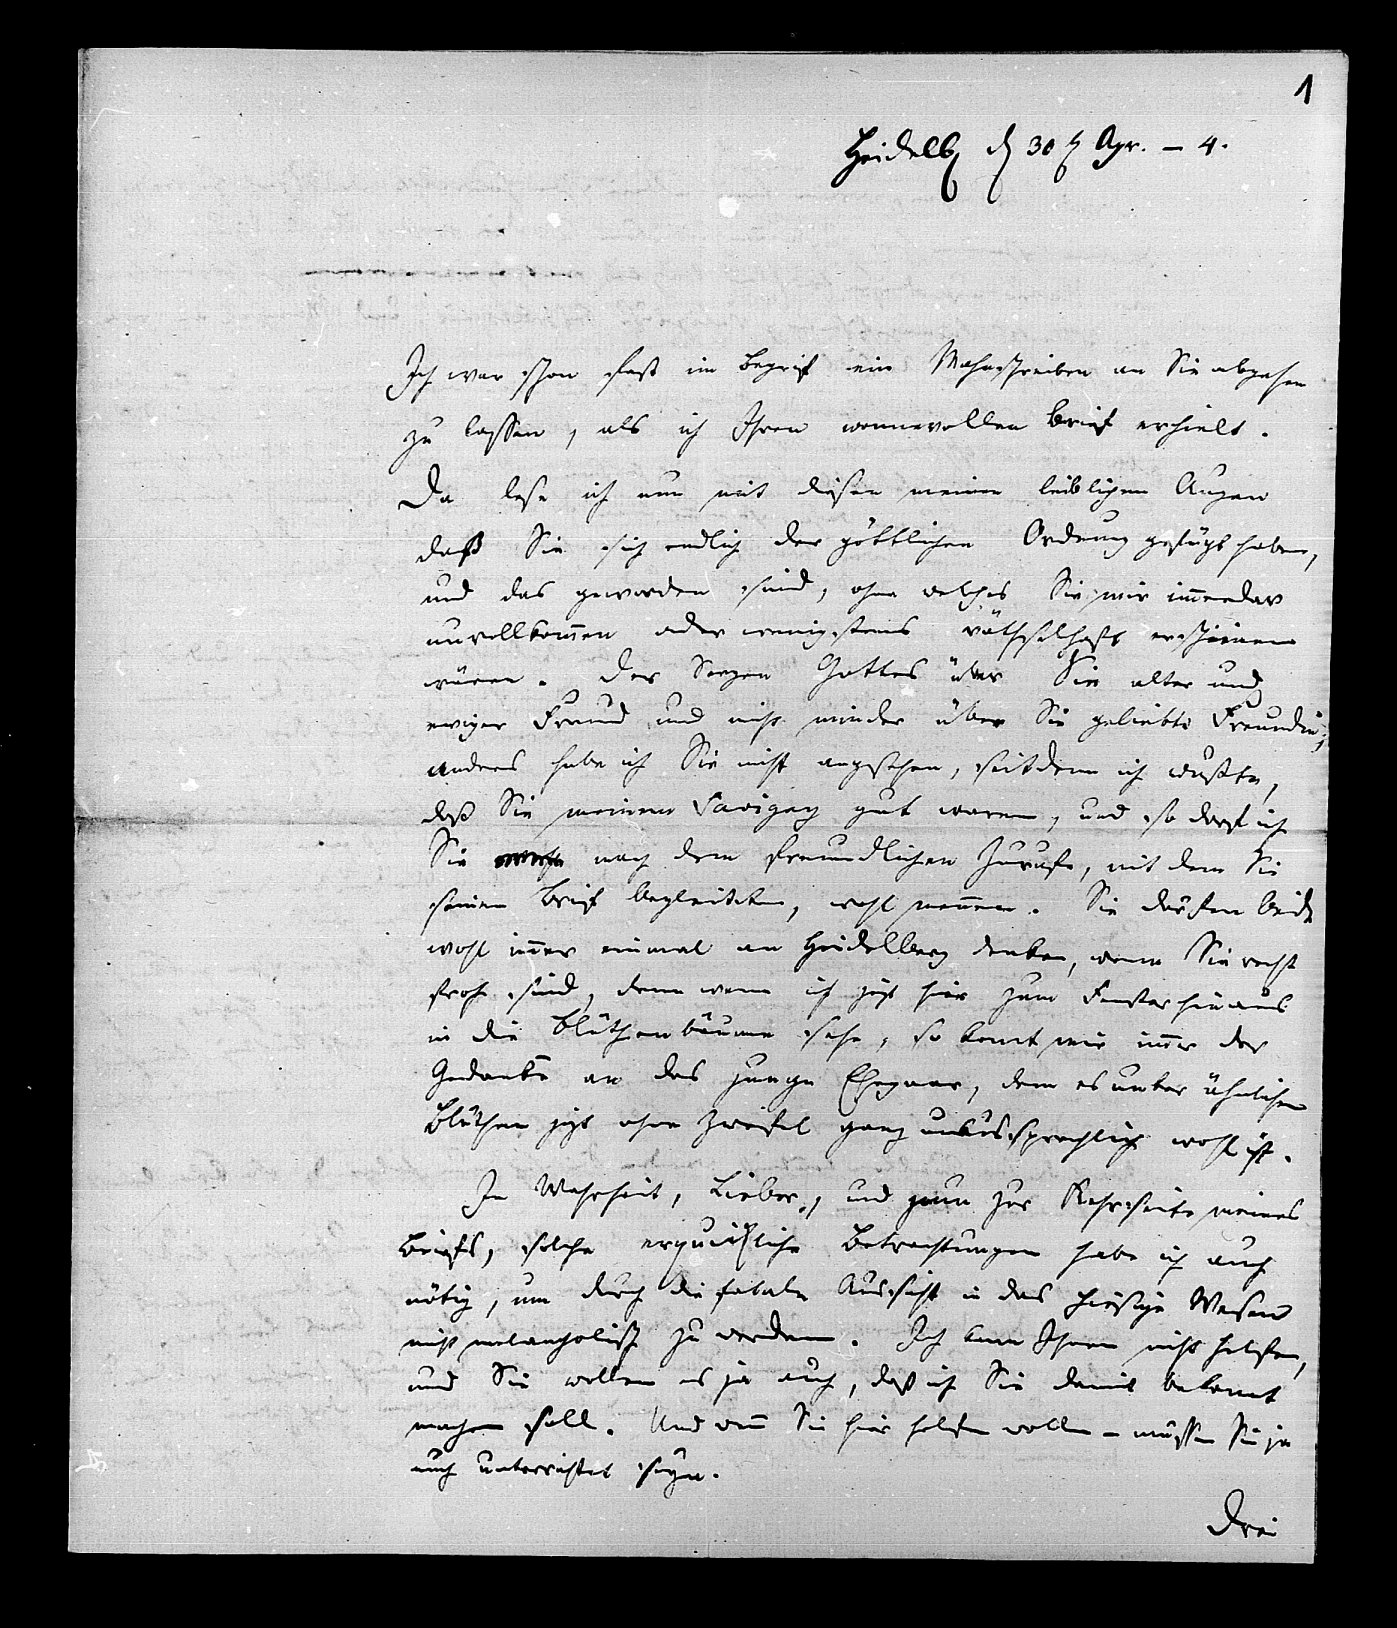 1
Heidelb. d. 30 Apr. – 4.
Ich war schon fast im Begrif ein Mahnschreiben an Sie abgehen
zu lassen, als ich Ihren wonnevollen Brief erhielt.
Da lese ich nun mit diesen meinen leiblichen Augen
daß Sie sich endlich der göttlichen Ordnung gefügt haben,
und das geworden sind, ohne welches Sie mir im̅erdar
unvollkom̅en oder wenigstens räthselhaft erschienen
wären. Der Seegen Gottes über Sie alter und
ewiger Freund und nicht minder über Sie geliebte Freundin,
anders habe ich Sie nicht angesehen, seitdem ich wußte,
daß Sie meinem Savigny gut waren, und so darf ich
Sie nach dem freundlichen Zurufe, mit dem Sie
seinen Brief begleiteten, wohl nennen. Sie dürfen beide
wohl im̅er einmal an Heidelberg denken, wenn Sie recht
froh sind, denn wenn ich jezt hier zum Fenster hinaus
in die Blüthenbäume sehe, so komt mir im̅er der
Gedanke an das junge Ehepaar, dem es unter ähnlichen
Blüthen jezt ohne Zweifel ganz unaussprechlich wohl ist.
In Wahrheit, Lieber, und zur Kehrseite meines
Briefs, solche erquickliche Betrachtungen habe ich auch
nötig, um durch die fatale Aussicht in das hiesige Wesen
nicht melancholisch zu werden. Ich kann Ihnen nicht helfen,
und Sie wollen es ja auch, daß ich Sie damit bekannt
machen soll. Und wen̅ Sie hier helfen wollen – müssen Sie ja
auch unterrichtet seyn.
Drei